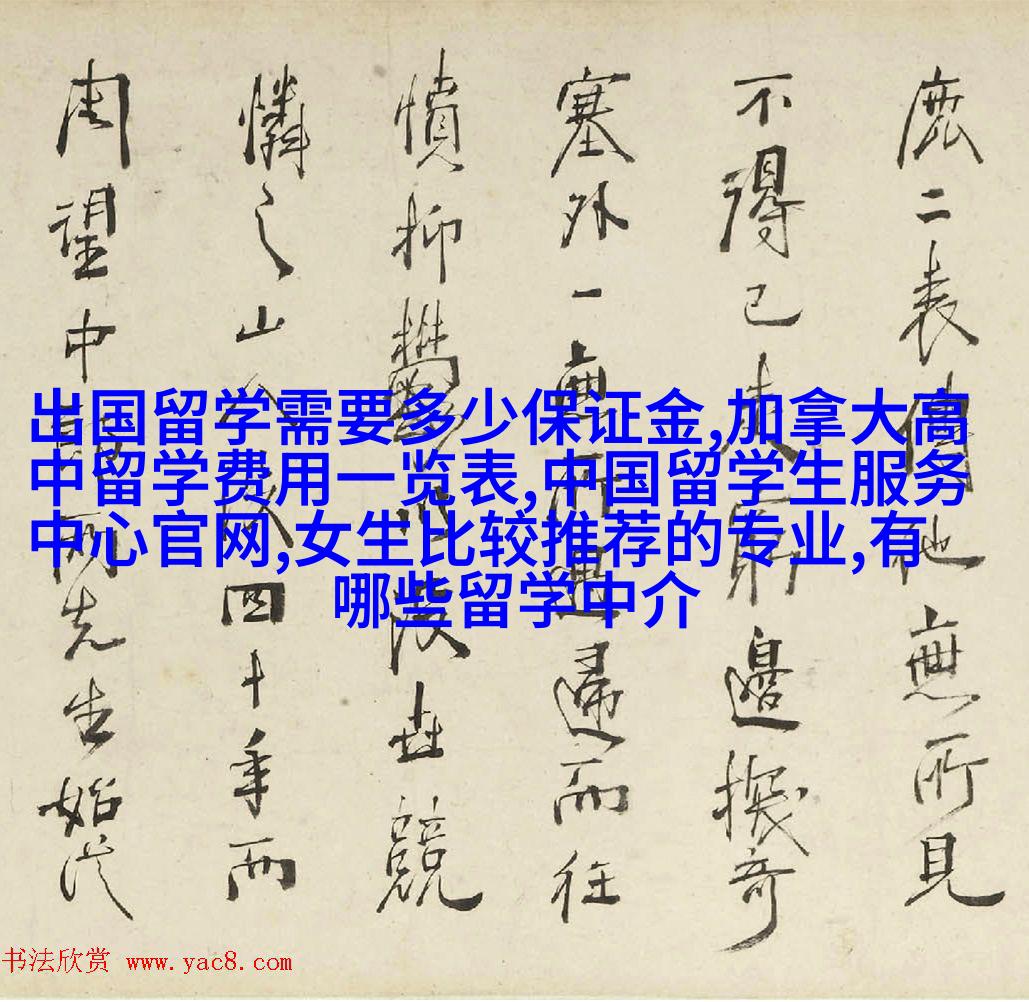 二表他應所見
不得已走窮邊探奇
塞外一應所遇歸而往
憤抑鬱世競
憐之山人四十年而
周望中兩先生始
出国留学需要多少保证金,加拿大高
中留学费用一览表,中国留学生服务
中心官网,女生比较推荐的专业,有
哪些留学中介
书法欣赏 www.yac8.com